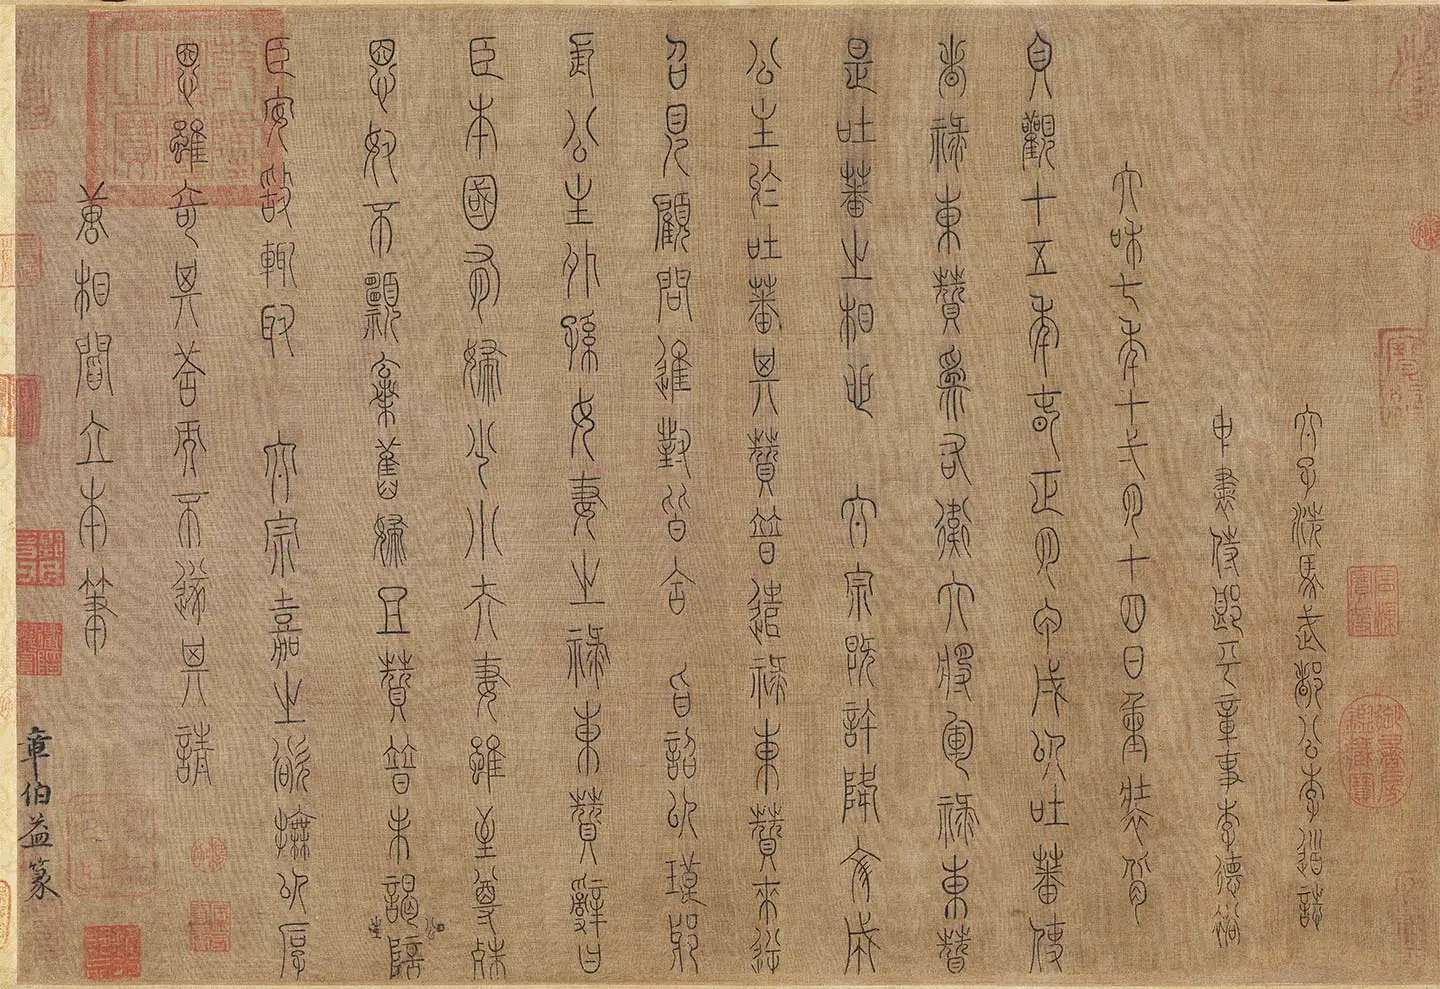 太子洗馬武都公李道誌
中書侍郎平章事李德裕
大和七年十一月十四日重裝背
貞觀十五年春正月甲戌以吐蕃使
者祿東贊為右衛大將軍祿東贊
是吐蕃之相也 太宗既許降文成
公主於吐蕃其贊普遣祿東贊來逆
召見顧問進對皆合 旨詔以琅邪
長公主外孫女妻之祿東贊辭曰
臣本國有婦少小夫妻雖至尊殊
恩奴不願棄舊婦且贊普未謁公主陪
臣安敢輒取 太宗嘉之欲撫以厚
恩雖奇其答而不遂其請
唐相閻立本筆
章伯益篆